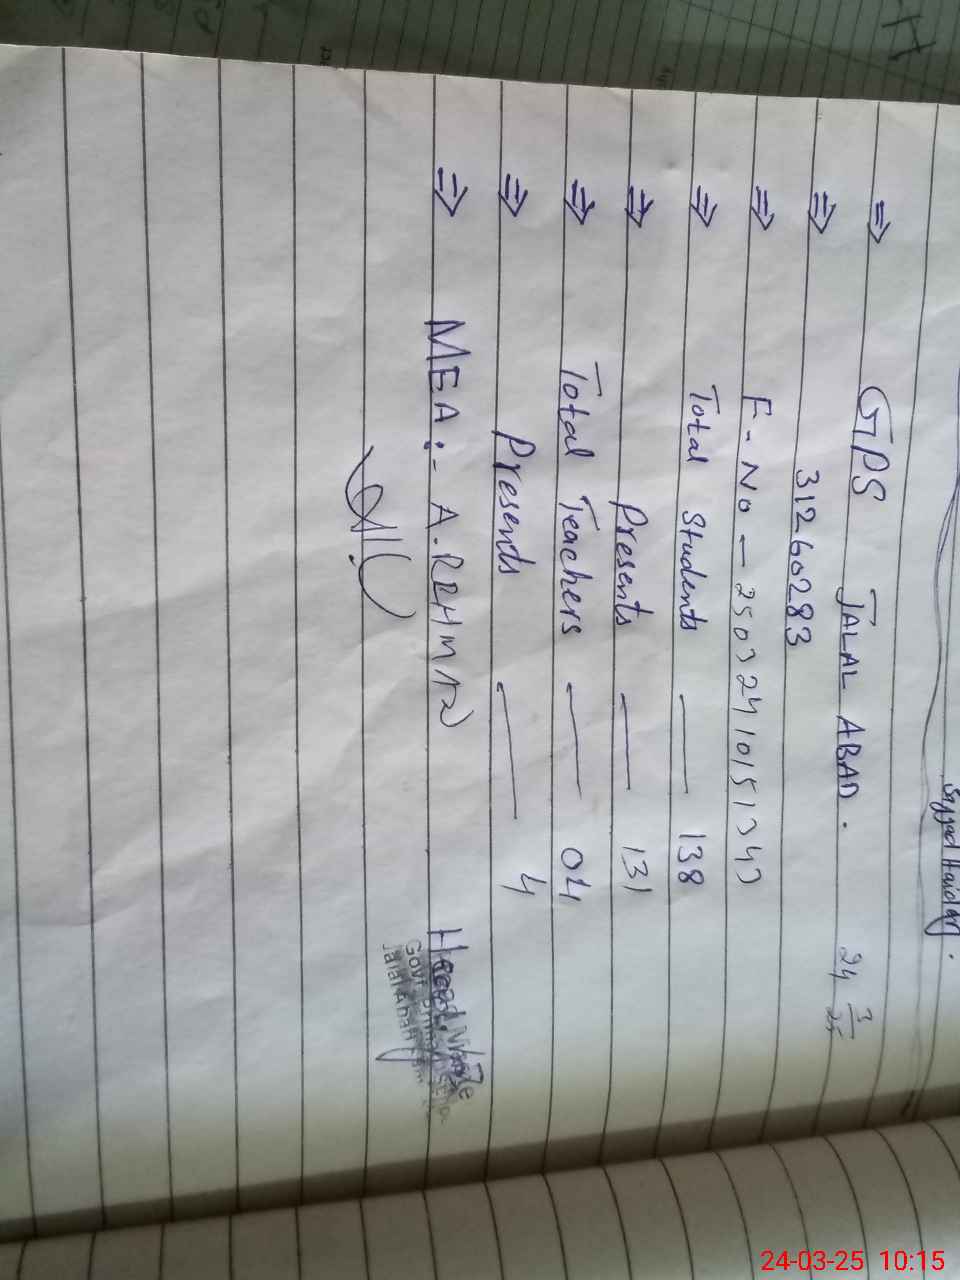 Sajjad Haider.
⇒ GPS JALAL ABAD. 24 3/25
⇒ 31260283
⇒ F-No — 2503241015134?
⇒ Total Students — 138
⇒ Presents — 131
⇒ Total Teachers — 04
⇒ Presents — 4
⇒ MEA:- A.
Head
Govt
Jalal Abad
24-03-25 10:15